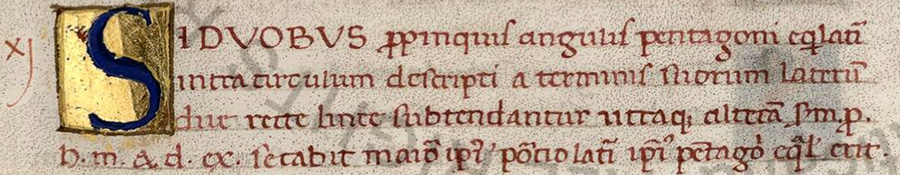 xj SI DVOBVS ꝓpinquis angulis pentagoni eq̃lati᷑
intra circulum descripti a terminis suorum laterū
due recte linee subtendantur utraqꝫ alterā ẜm ꝓ.
h. m. & d. ex. secabit maior᷑ ip̃i᷑ porcio lati᷑ ip̃i᷑ pētago᷑ eq̃l᷑ erit.